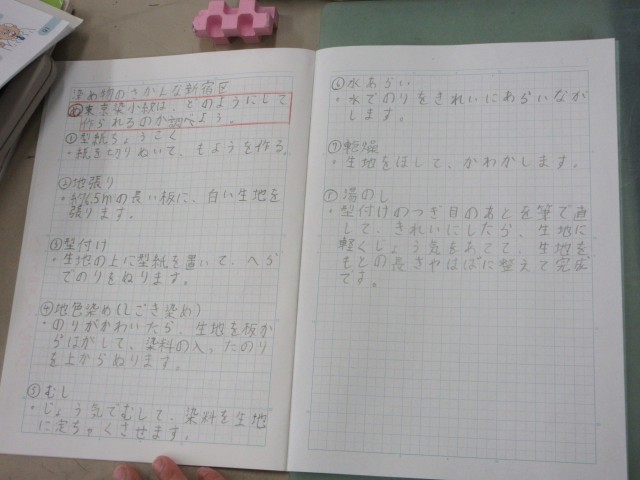 染め物のさかんな新宿区
東京染小紋は、どのようにして
作られるのか調べよう。
①型紙ちょうこく
・紙を切りぬいて、もようを作る。
②地張り
・約6.5mの長い板に、白い生地を
張ります。
③型付け
・生地の上に型紙を置いて、へら
でのりをぬります。
④地色染め(しごき染め)
・のりがかわいたら、生地を板か
らはがして、染料の入ったのり
を上からぬります。
⑤むし
・じょう気でむして、染料を生地
に定ちゃくさせます。
⑥水あらい
・水でのりをきれいにあらいなが
します。
⑦乾燥
・生地をほして、かわかします。
湯のし
・型付けのつぎ目のあとを筆で直
して、きれいにしたら、生地に
軽くじょう気をあてて、生地を
もとの長さやはばに整えて完成
です。